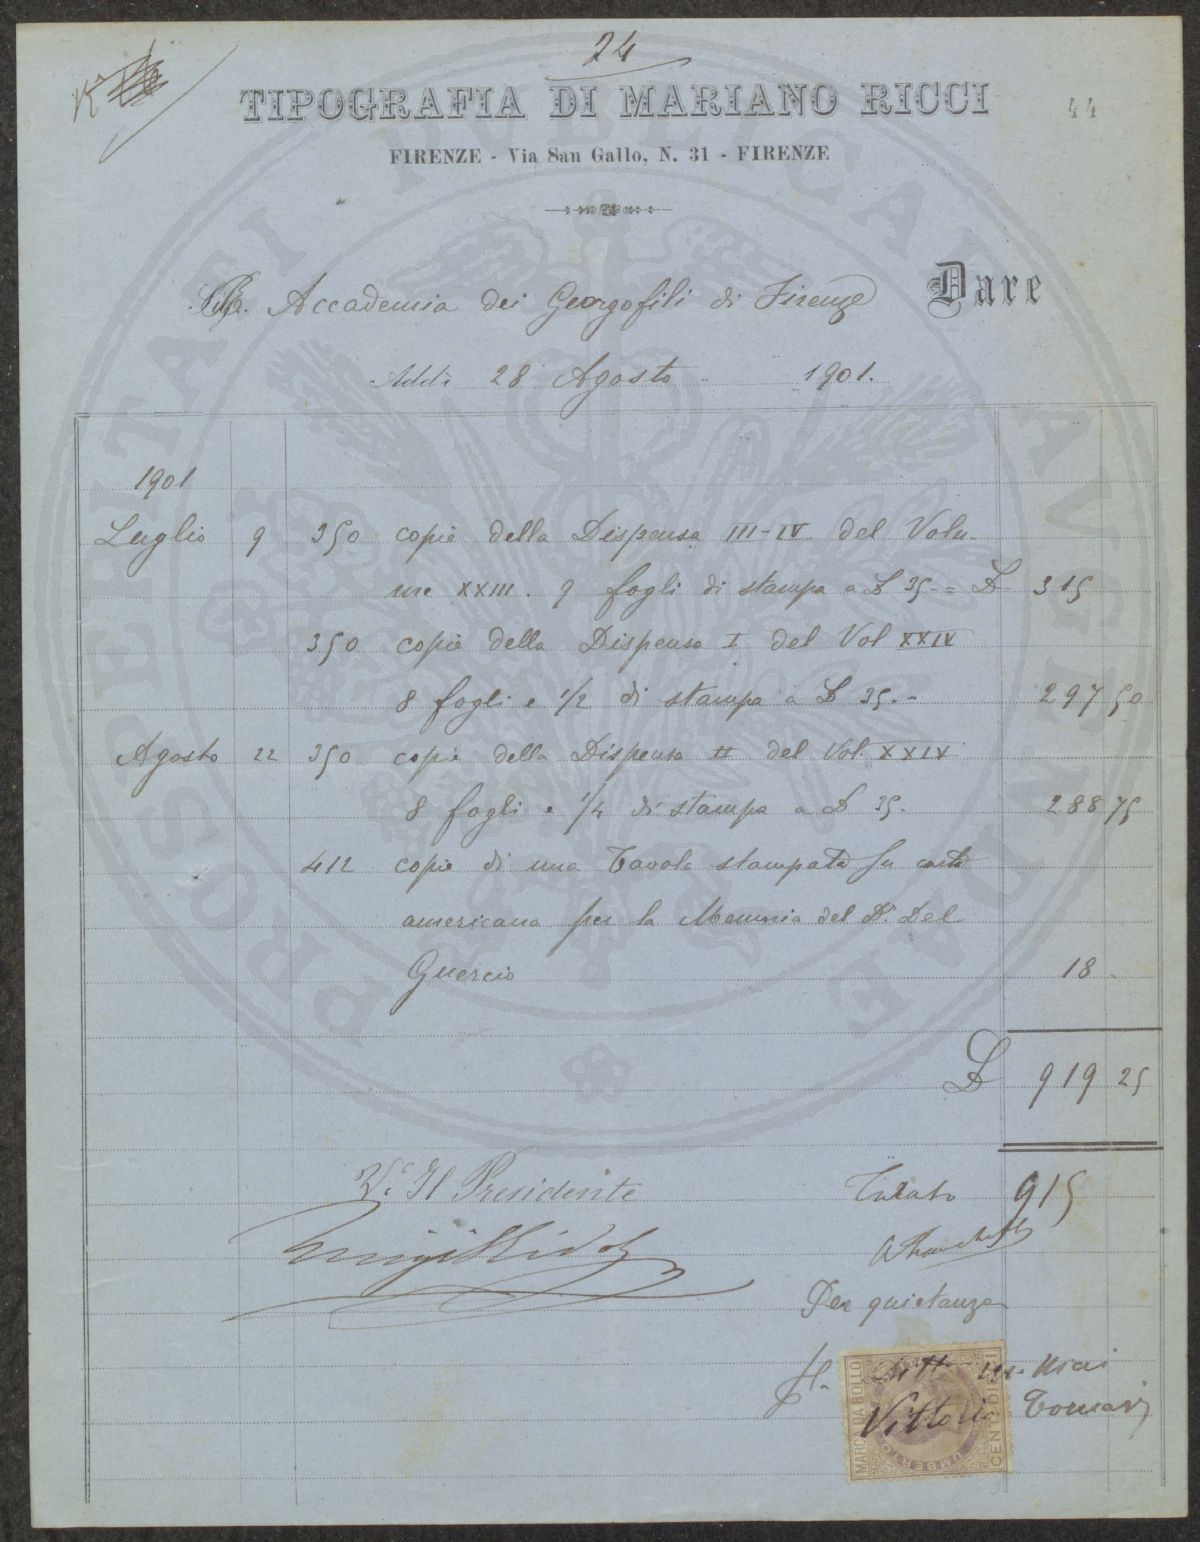 24
N°
TIPOGRAFIA DI MARIANO RICCI
44
FIRENZE - Via San Gallo, N. 31 - FIRENZE
Accademia dei Georgofili di Firenze Dare
Addì 28 Agosto 1901.
1901
Luglio 9 350 copie della Dispensa III-IV del Volu-
me XXIII. 9 fogli di stampa a L 35.- = L 315
350 copie della Dispensa I del Vol XXIV
8 fogli e 1/2 di stampa a L 35.- 297 50
Agosto 22 350 copie della Dispensa II del Vol. XXIV
8 fogli e 1/4 di stampa a L 35. 288 75
412 copie di una Tavola stampata su carta
americana per la Memoria del Dr. Del
Guercio 18 -
L 919 25
V° Il Presidente Tarato 915
Per quietanza
p. Ditta Ricci
Vittorio
MARCA DA BOLLO
CENT. DIECI
UMBERTO
PROSPERITATI PUBLICAE AUGENDAE